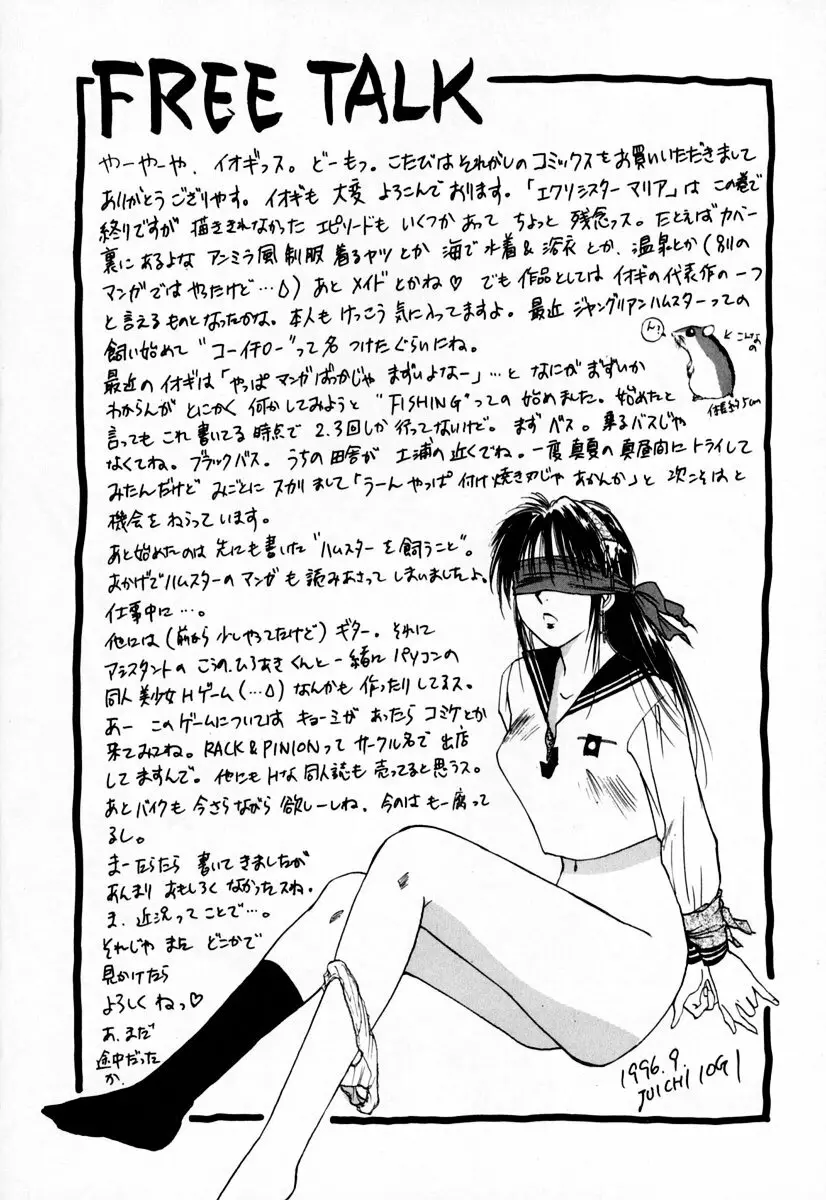 FREE TALK
やーやーや、イオギっス。どーもっ。こたびはそれがしのコミックスをお買いいただきまして
ありがとうござりやす。イオギも 大変 よろこんでおります。「エクソシスター マリア」は この巻で
終りですが 描ききれなかった エピソードも いくつかあって ちょっと 残念っス。たとえばカバー
裏にあるよな アンミラ風 制服 着るヤツとか 海で 水着&浴衣とか、温泉とか(別の
マンガではやったけど…△)あと メイドとかね♡ でも 作品としては イオギの代表作の一つ
と言えるものとなったかな。本人も けっこう 気に入ってますよ。最近 ジャンガリアンハムスターっての
飼い始めて "コーイチロー"って名 つけたぐらいにね。
ん!
こんなの
体長約5cm
最近のイオギは「やっぱ マンガばっかじゃ まずいよなー」…と なにが まずいか
わからんが とにかく 何かしてみようと "FISHING"っての始めました。始めたと
言っても これ書いてる時点で 2.3回しか行ってないけど。まず バス。乗るバスじゃ
なくてね。ブラックバス。うちの田舎が 土浦の近くでね。一度 真夏の真昼間にトライして
みたんだけど みごとに スカりまして「うーん やっぱ 付け焼き刃じゃ あかんか」と 次こそはと
機会をねらっています。
あと始めたのは 先にも書いた"ハムスターを飼うこと"。
おかげでハムスターのマンガも 読みあさってしまいましたよ。
仕事中に…。
他には(前から 少しやってたけど)ギター。それに
アシスタントの こうの.ひろあきくんと一緒に パソコンの
同人 美少女Hゲーム(…△)なんかも 作ったりしてるス。
あー このゲームについてす キョーミが あったら コミケとか
来てみてね。RACK&PINIONって サークル名で 出店
してますんで。他にもHな 同人誌も 売ってると思うス。
あとバイクも 今さらながら 欲しーしね、今のは もー腐って
るし。
まーたらたら 書いてきましたが
あんまり おもしろく なかったスね。
ま、近況ってことで…。
それじゃ また どこかで
見かけたら
よろしく ねっ♡
あ、まだ
途中だった
か.
1996.9.
JUICHI IOGI